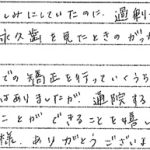 しみにしていたのに、過剰
永久歯を見たときのがっか
での矯正を行っていくうち
はありましたが、通院する
ことができることを嬉し
様、ありがとうございま